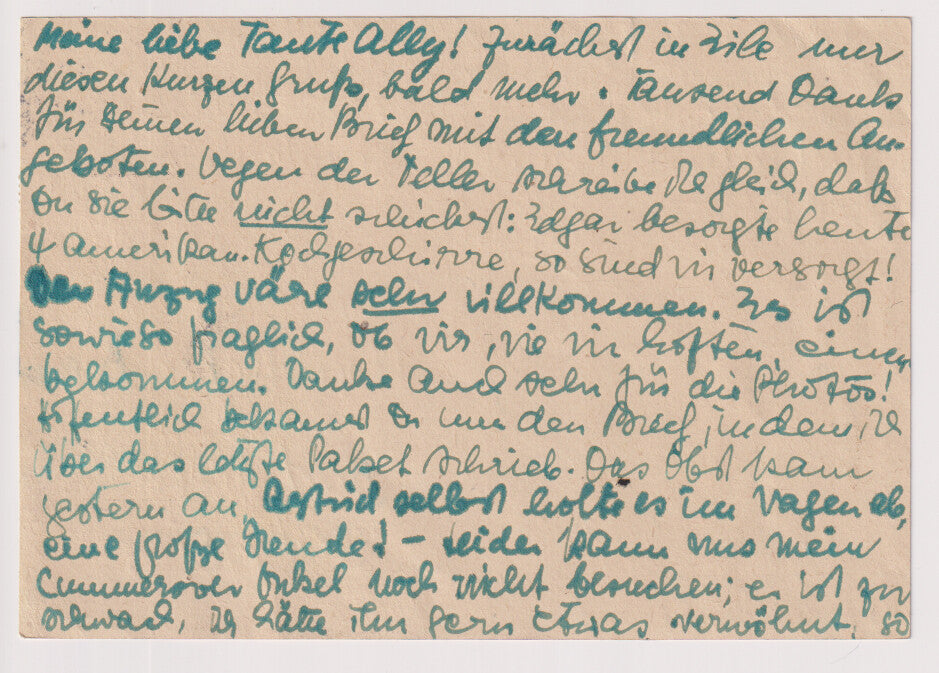 Meine liebe Tante Ally! Zunächst in Eile nur
diesen kurzen Gruß, bald mehr. Tausend Dank
für Deinen lieben Brief mit den freundlichen An-
geboten. Wegen der Teller schreibe ich gleich, daß
Du sie bitte nicht schickst: Edgar besorgte heute
4 amerikan. Kochgeschirre, so sind wir versorgt!
Der Anzug wäre sehr willkommen. Es ist
sowieso fraglich, ob wir, wie wir hoffen, einen
bekommen. Danke auch sehr für die Photos!
Hoffentlich bekamst Du nun den Brief, in dem ich
über das letzte Paket schrieb. Das Obst kam
gestern an, Astrid selbst holte es im Wagen ab,
eine große Freude! – Leider kann uns mein
Onkel noch nicht besuchen; er ist zu
schwach, ich hätte ihn gern etwas verwöhnt, so